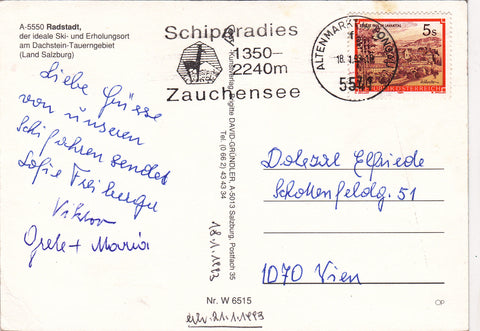 A-5550 Radstadt,
der ideale Ski- und Erholungsort
am Dachstein-Tauerngebiet
(Land Salzburg)
Schiparadies
1350-
2240m
Zauchensee
ALTENMARKT
18.1.93
5541
5s
REPUBLIK ÖSTERREICH
Liebe Grüsse
von unseren
Schifahren sendet
Sofie Freiberger
Viktor
Grete + Maria
Kunstverlag Brigitte DAVID-GRÜNDLER, A-5013 Salzburg, Postfach 35
Tel. (0 66 2) 43 43 34
18.1.1993
Dolezal Elfriede
Schottenfeldg. 51
1070 Wien
Nr. W 6515
erh. 21.1.1993